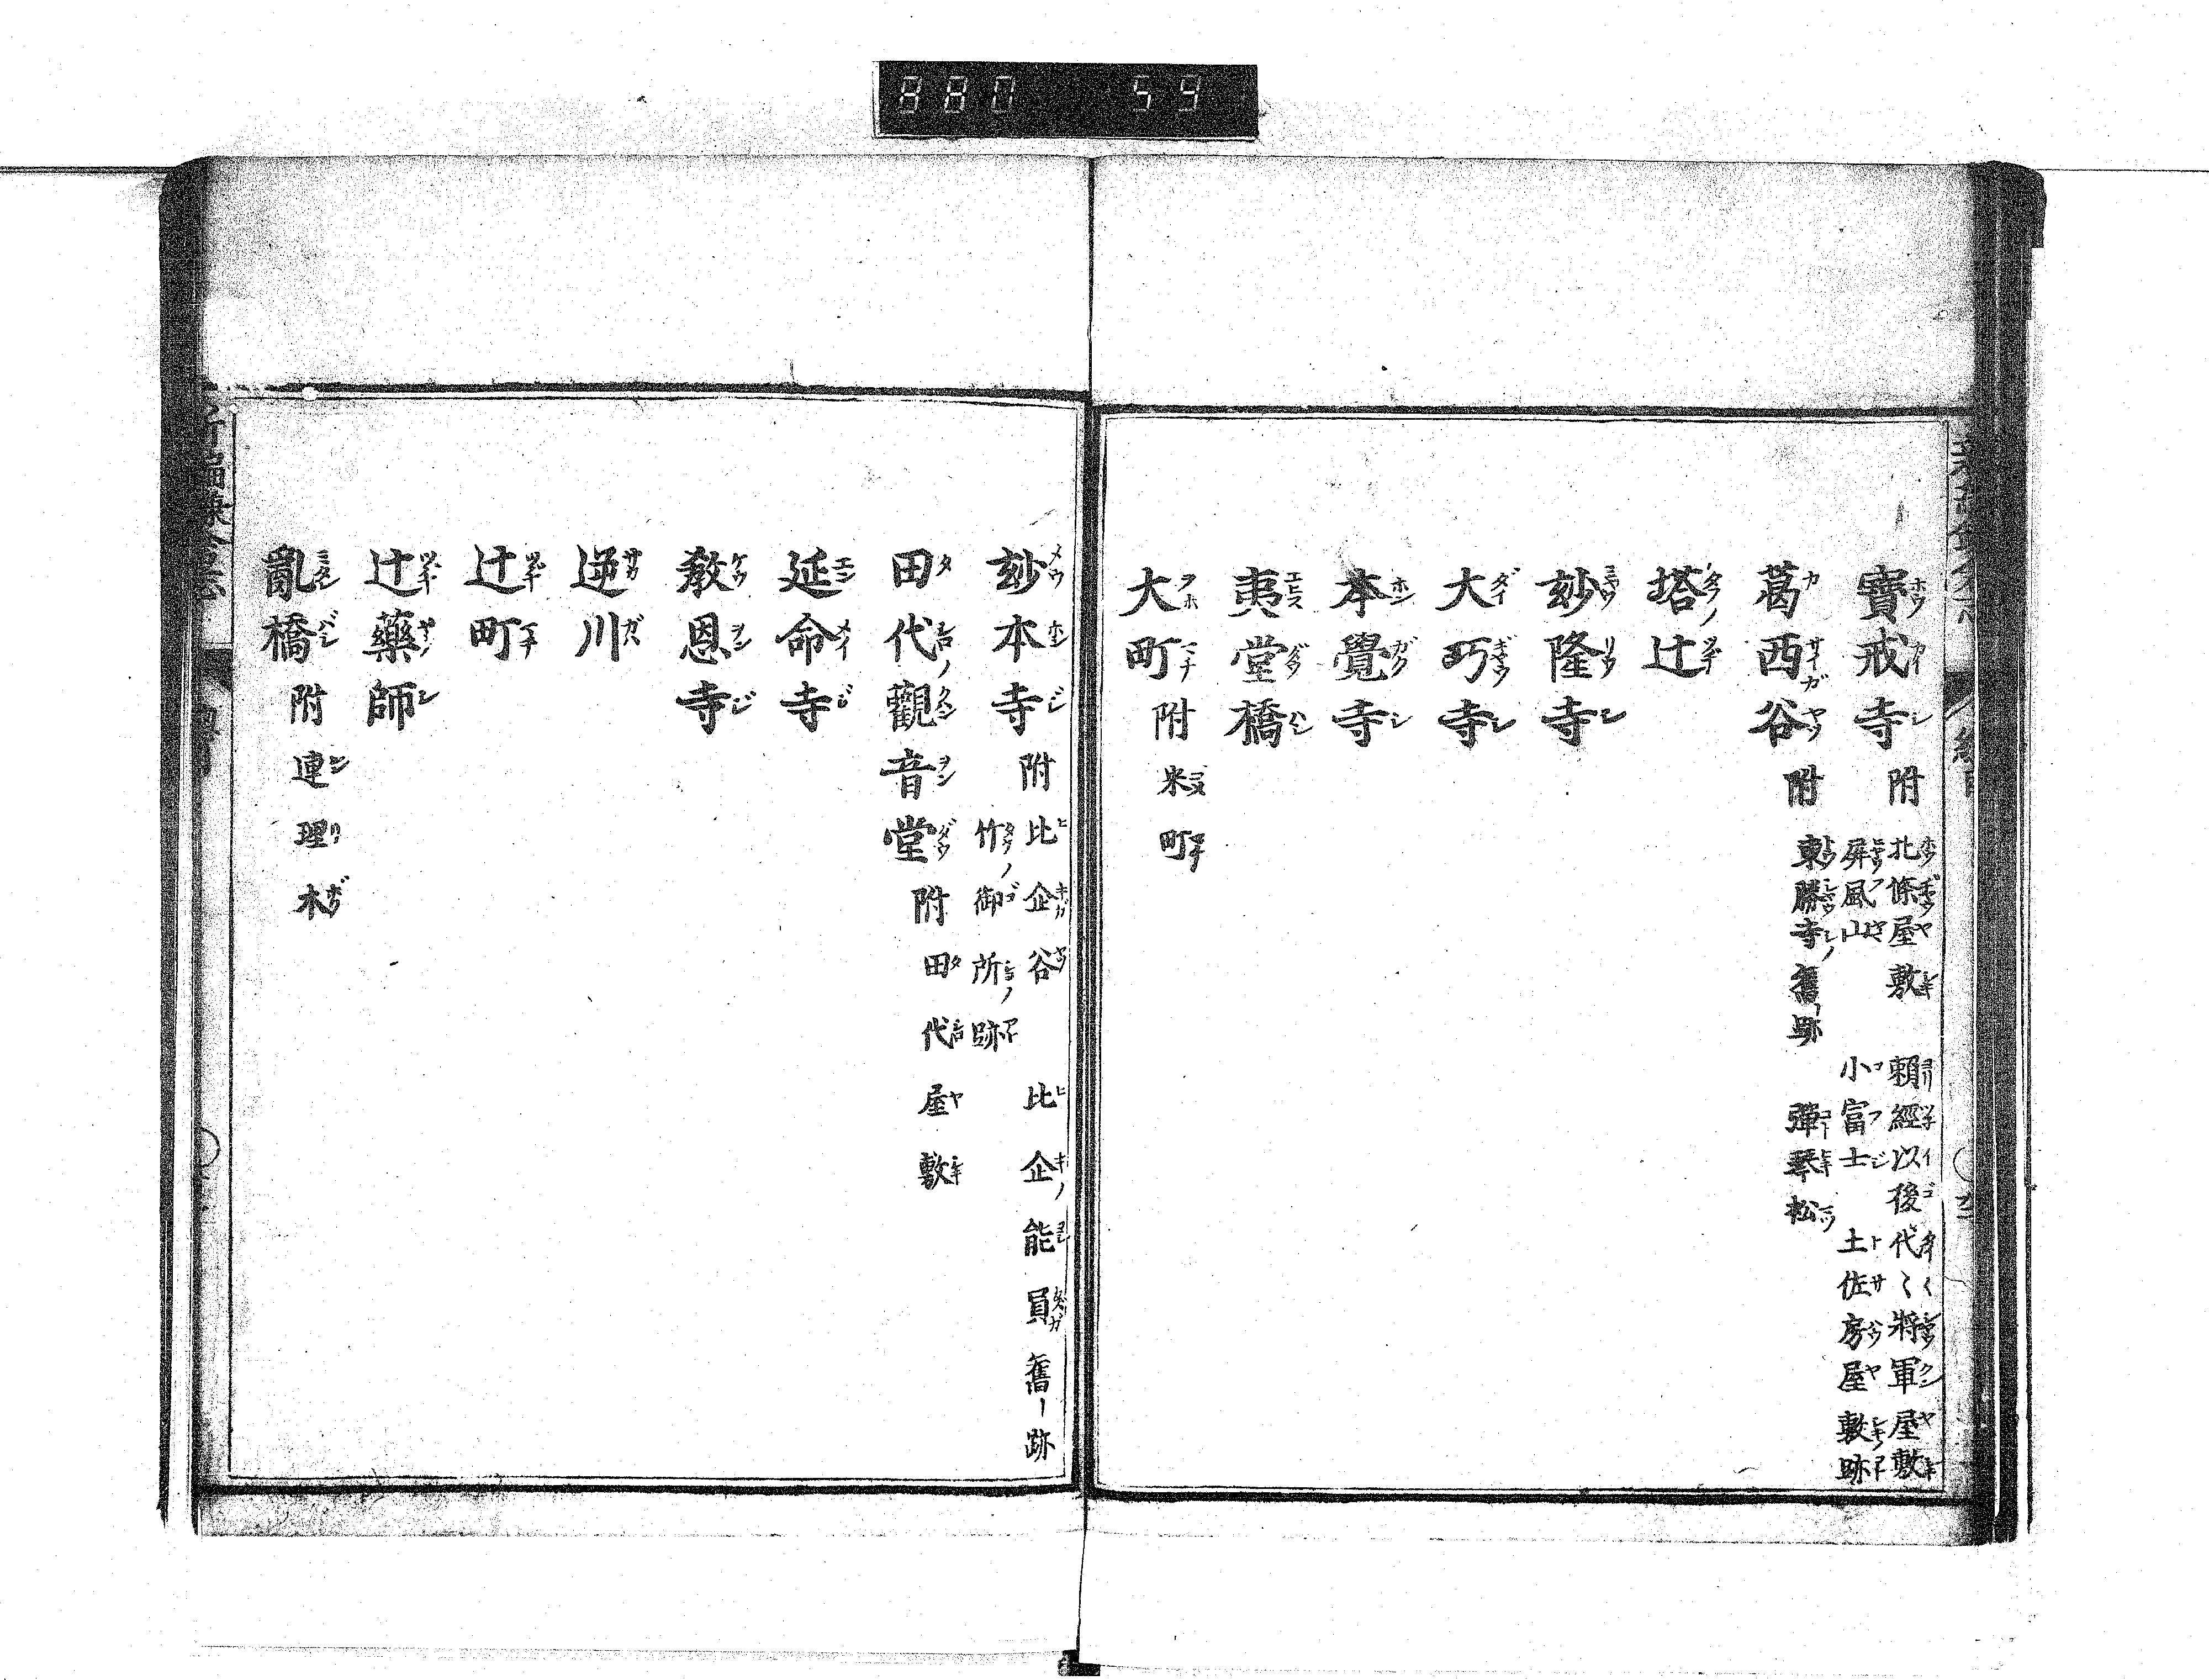 880 59
寶戒寺 附 北條屋敷 賴經以後代〻將軍屋敷
屏風山 小富士 土佐房屋敷跡
葛西谷 附 東勝寺舊跡 彈琴松
塔辻
玅隆寺
大巧寺
本覺寺
夷堂橋
大町 附 米町
玅本寺 附 比企谷 比企能員舊跡
竹御所跡
田代觀音堂 附 田代屋敷
延命寺
教恩寺
逆川
辻町
辻藥師
亂橋 附 連理木